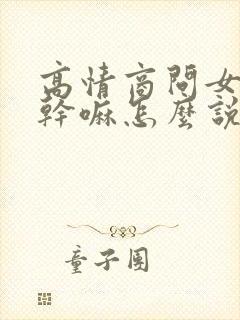 高情商問女
幹嘛怎麼說
童子團